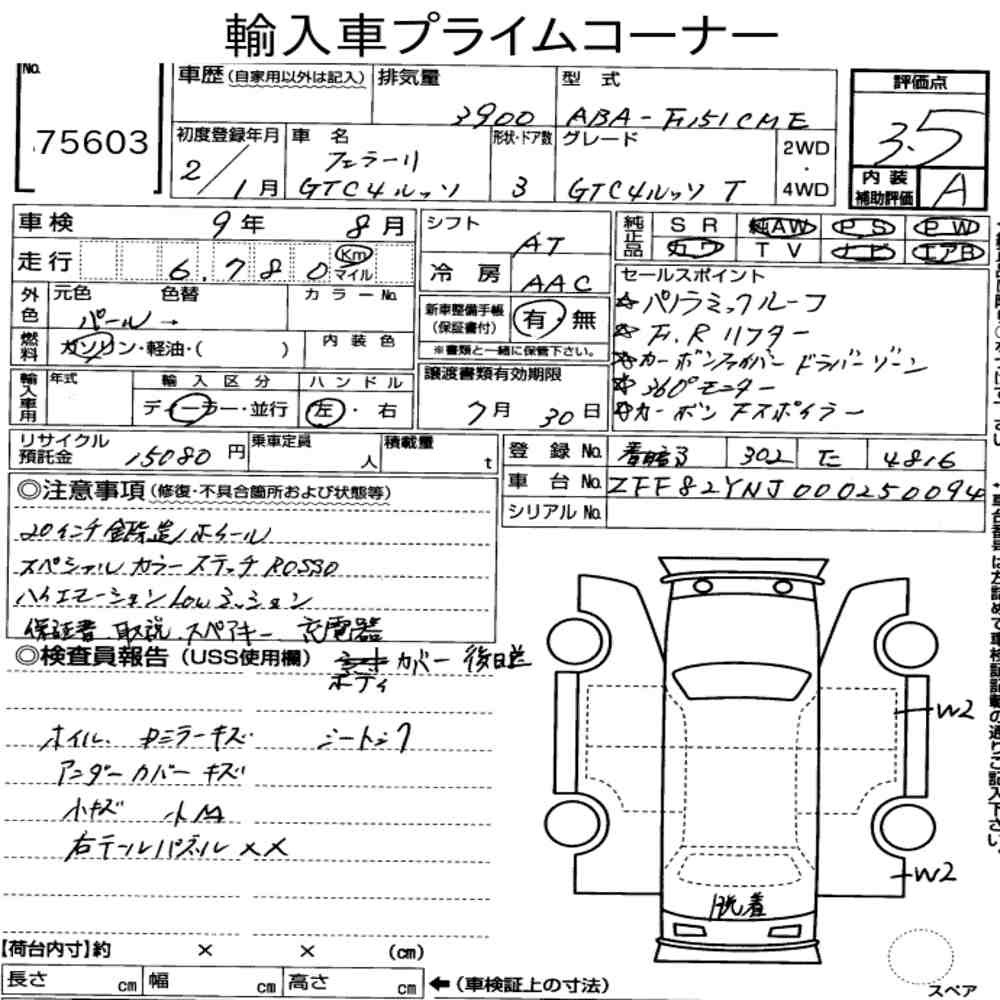 輸入車プライムコーナー
No.
75603
車歴(自家用以外は記入)
排気量
3900
型式
ABA-F151CME
評価点
3.5
内装補助評価
A
初度登録年月
2/1月
車名
フェラーリ
GTC4ルッソ
形状・ドア数
3
グレード
GTC4ルッソ T
2WD
・
4WD
車検
9年 8月
走行
6.780
Km
マイル
シフト
AT
冷房
AAC
純正品
SR 純AW PS PW
カワ TV ナビ エアB
外色
元色 色替
パール→
カラーNo.
燃料
ガソリン・軽油・( )
内装色
新車整備手帳
(保証書付)
有 無
※書類と一緒に保管下さい。
セールスポイント
☆パノラミックルーフ
☆F.Rリフター
☆カーボンファイバードライバーゾーン
☆360°モニター
☆カーボンFスポイラー
輸入車用
年式
輸入区分
ディーラー・並行
ハンドル
左・右
譲渡書類有効期限
7月30日
リサイクル
預託金
15080円
乗車定員
人
積載量
t
登録No.
302 た 4816
車台No.
ZFF82YNJ000250094
シリアルNo.
◎注意事項(修復・不具合箇所および状態等)
20インチ鍛造ホイール
スペシャルカラーステッチROSSO
ハイエモーションLowミッション
保証書.取説.スペアキー.充電器
◎検査員報告(USS使用欄)
カバー後日送
ボディ
ホイル、Dミラーキズ シートシワ
アンダーカバーキズ
小キズ 小凹
右テールパネルXX
W2
W2
脱着
【荷台内寸】約 × × (cm)
長さ cm 幅 cm 高さ cm
←(車検証上の寸法)
スペア
車台番号は左詰めで車検証記載の通りご記入下さい。